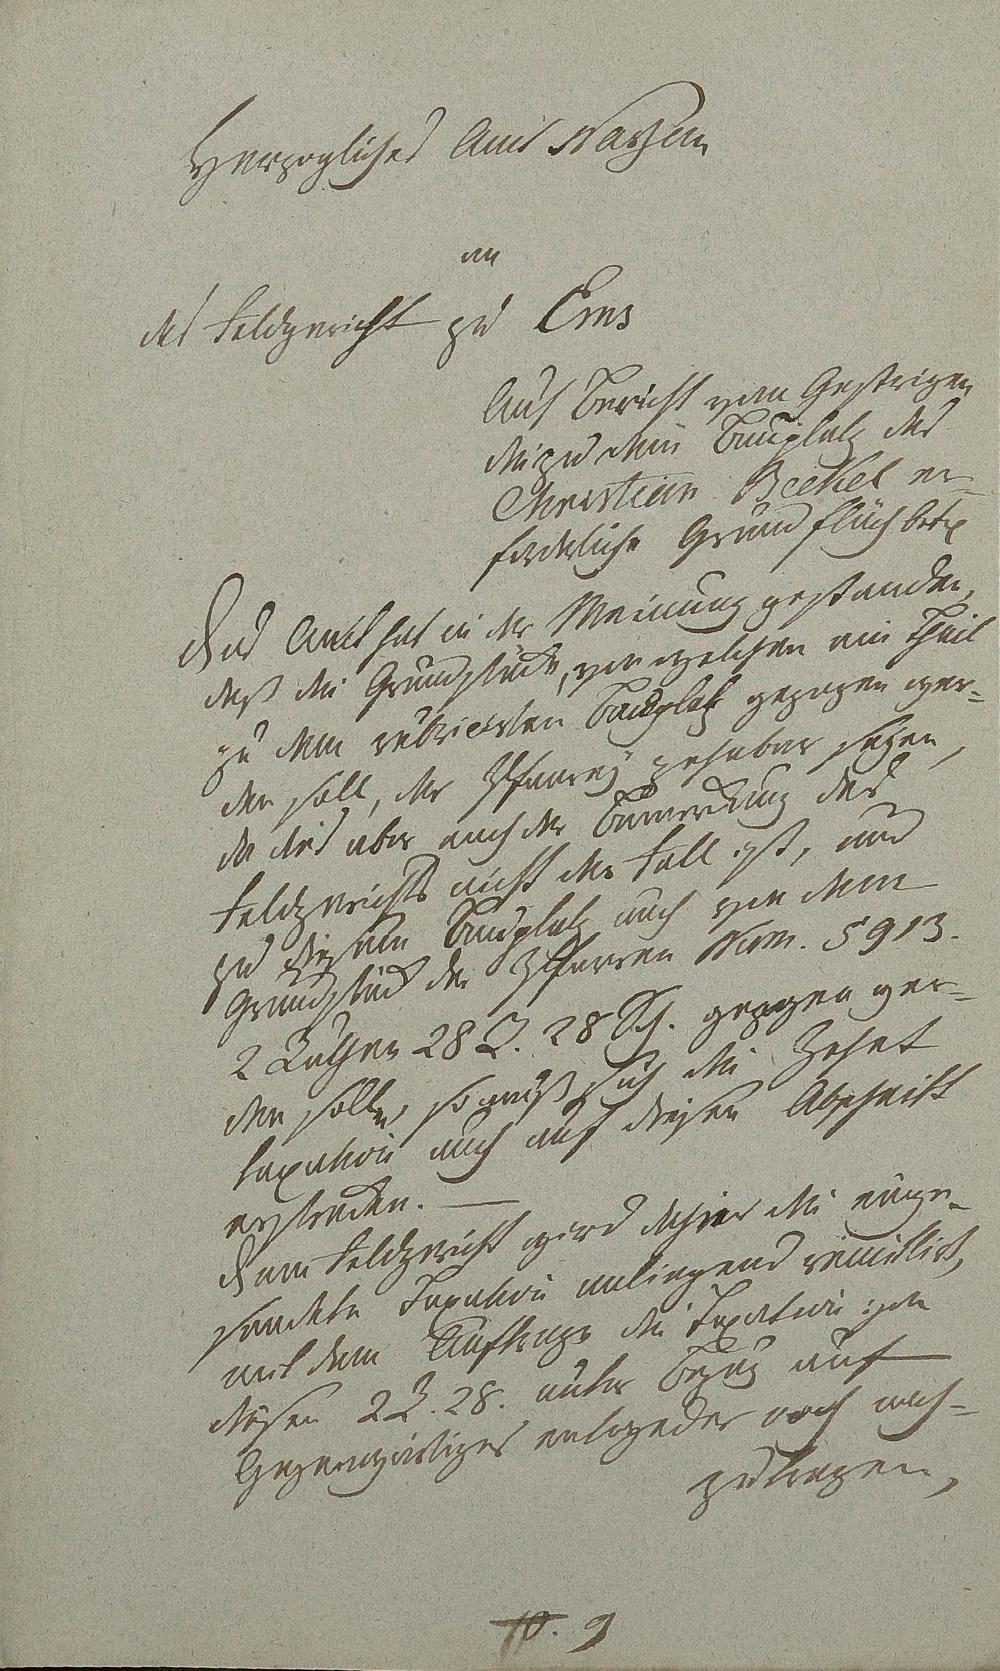 Herzogliches Amt Nassau
an
das Feldgericht zu Ems
Auf Bericht vom Gestrigen
die zu dem Bauplatz des
Christian Beckel er-
forderliche Grundfläche betr
Das Amt hat in der Meinung gestanden,
daß die Grundstücke, von welchen ein Theil
zu dem rubricirten Bauplatz gezogen wer-
den soll, der Pfarrey zehnbar seyen,
da dies aber nach der Bemerkung des
Feldgerichts nicht der Fall ist, und
zu diesem Bauplatz auch von dem
Grundstück der Pfarrey Num. 5913.
2 Ruthen 28 Sch. gezogen wer-
den sollen, so muß sich die Zehnt
taxation auch auf diesen Abschnitt
erstrecken. —
Dem Feldgericht wird daher die einge-
sandte Taxation anliegend remittirt,
mit dem Auftrage die Taxation von
diesen 2 R. 28. unter Bezug auf
Gegenwärtiges entweder noch nach-
zutragen,
10. 9